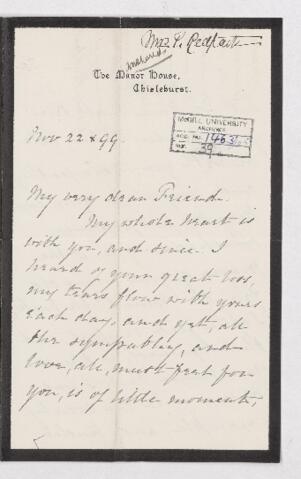 Mrs P. Redpath
Answered
The Manor House,
Chislehurst.
McGILL UNIVERSITY
ARCHIVES
ACC. NO.
REF. 39
Nov 22 & 99.
My very dear Friend.
My whole heart is
with you, and since I
heard of your great loss,
my tears flow with yours
each day, and yet, all
the sympathy, and
love, all, must feel for
you, is of little moment,